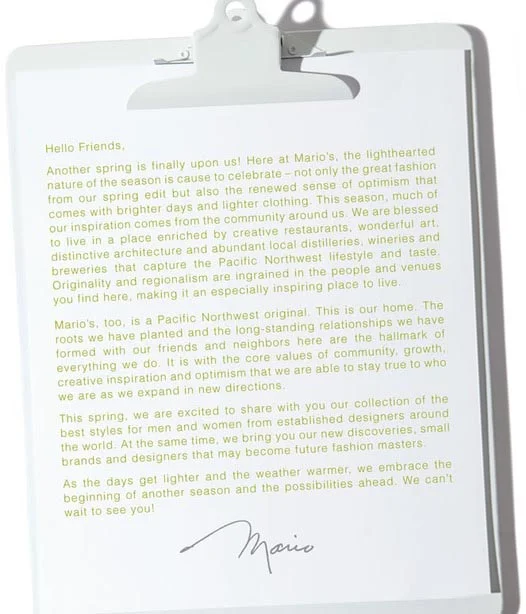 Hello Friends,
Another spring is finally upon us! Here at Mario's, the lighthearted
nature of the season is cause to celebrate – not only the great fashion
from our spring edit but also the renewed sense of optimism that
comes with brighter days and lighter clothing. This season, much of
our inspiration comes from the community around us. We are blessed
to live in a place enriched by creative restaurants, wonderful art,
distinctive architecture and abundant local distilleries, wineries and
breweries that capture the Pacific Northwest lifestyle and taste.
Originality and regionalism are ingrained in the people and venues
you find here, making it an especially inspiring place to live.
Mario's, too, is a Pacific Northwest original. This is our home. The
roots we have planted and the long-standing relationships we have
formed with our friends and neighbors here are the hallmark of
everything we do. It is with the core values of community, growth,
creative inspiration and optimism that we are able to stay true to who
we are as we expand in new directions.
This spring, we are excited to share with you our collection of the
best styles for men and women from established designers around
the world. At the same time, we bring you our new discoveries, small
brands and designers that may become future fashion masters.
As the days get lighter and the weather warmer, we embrace the
beginning of another season and the possibilities ahead. We can't
wait to see you!
Mario